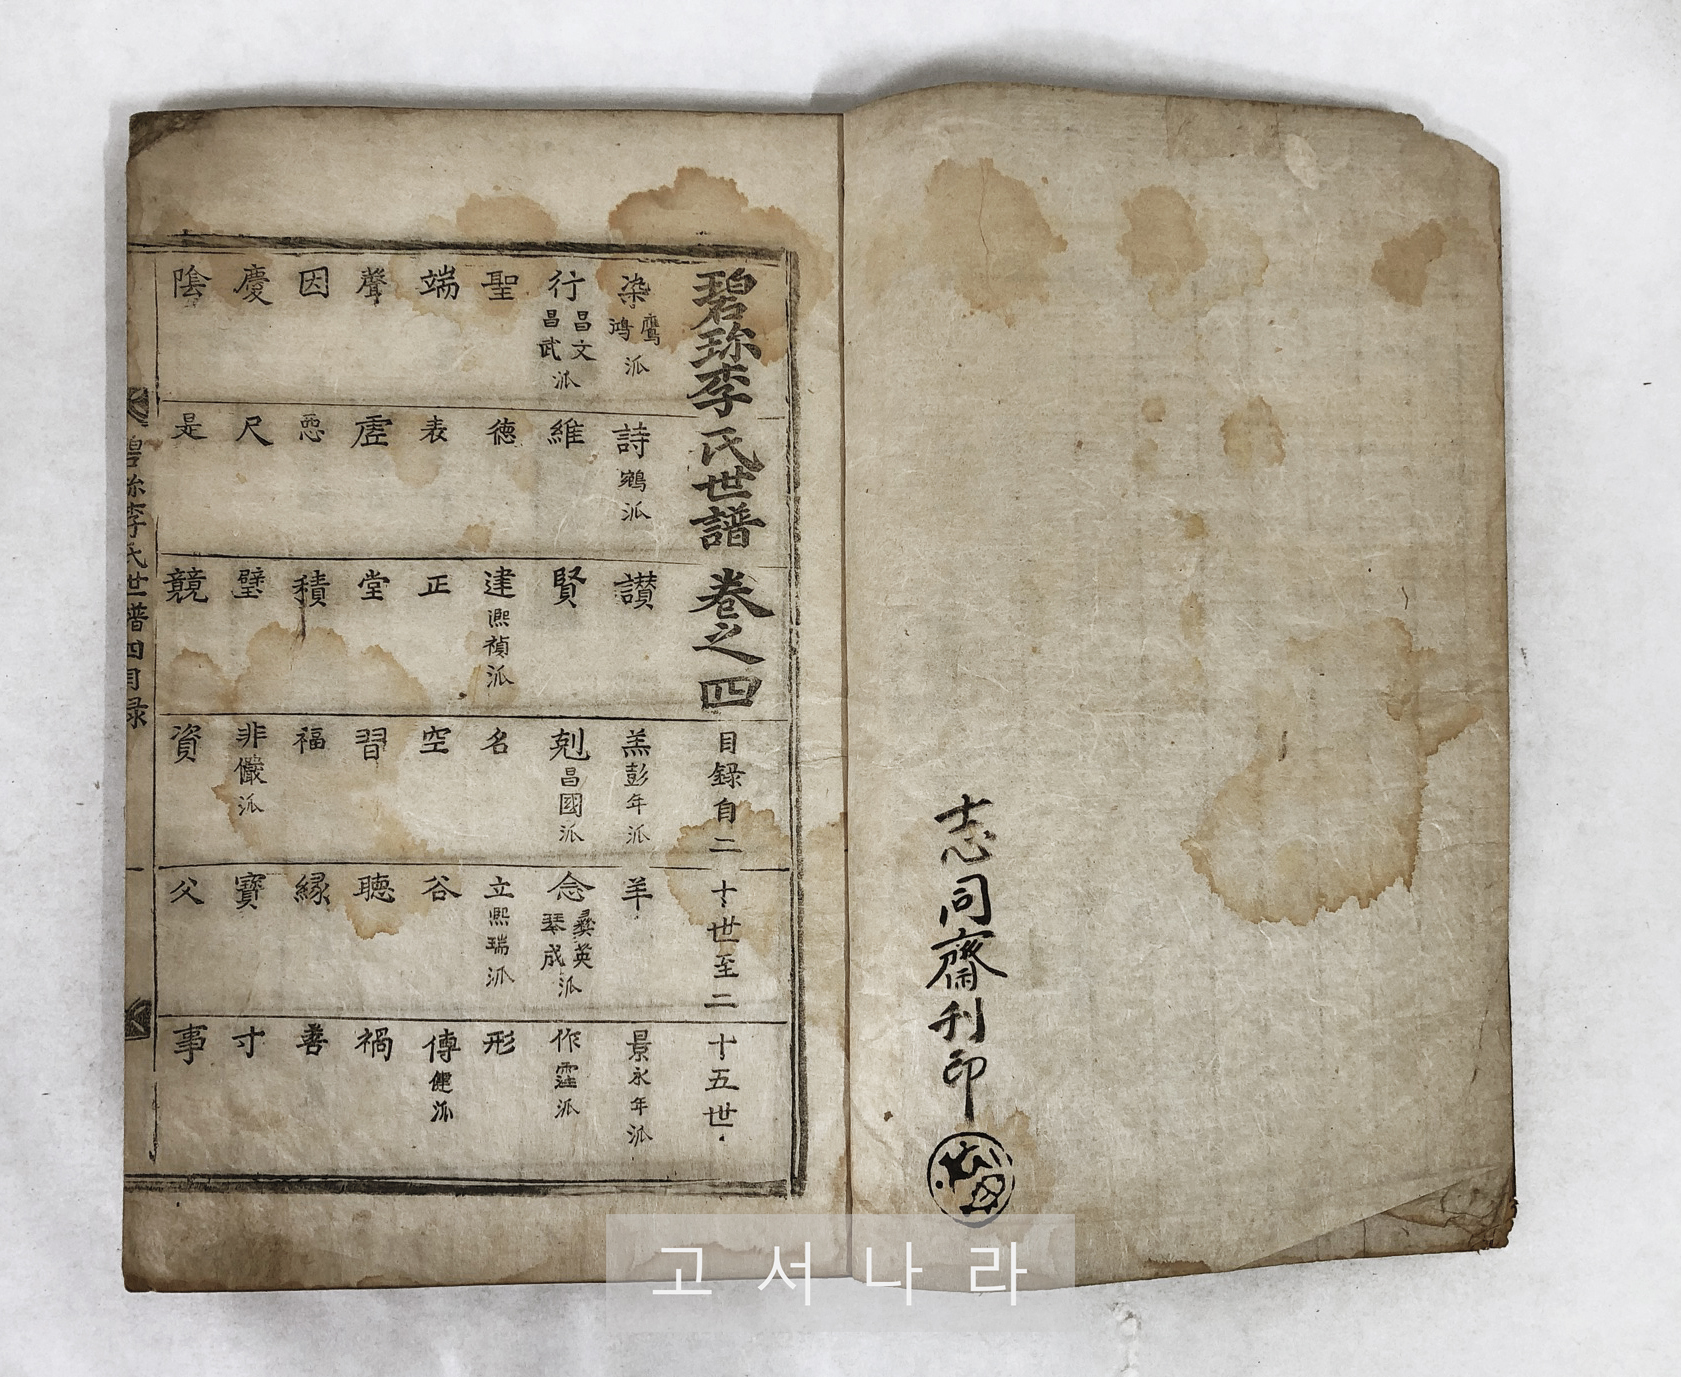 志同齋刋印
碧珎李氏世譜卷之四 目錄自二十世至二十五世
染 鷹鴻派 詩 鵷派 讃 羔 彭年派 羊 景 永年派
行 昌文昌武派 維 賢 剋 昌國派 念 彛英琴成派 作 霆派
聖 德 建 熈禎派 名 立 熈瑞派 形
端 表 正 空 谷 傳 健派
聲 虛 堂 習 聽 禍
因 惡 積 福 緣 善
慶 尺 璧 非 儼派 寶 寸
陰 是 競 資 父 事
碧珎李氏世譜四目录
고서나라